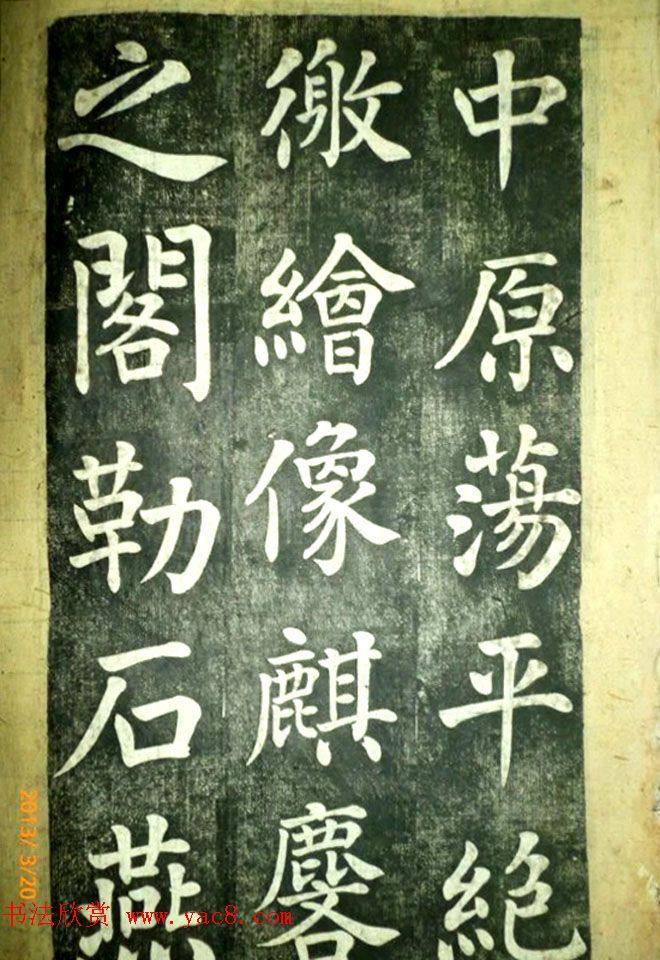 中原蕩平絕
徼繪像麒麐
之閣勒石燕
2013/ 3/20
书法欣赏 www.yac8.com